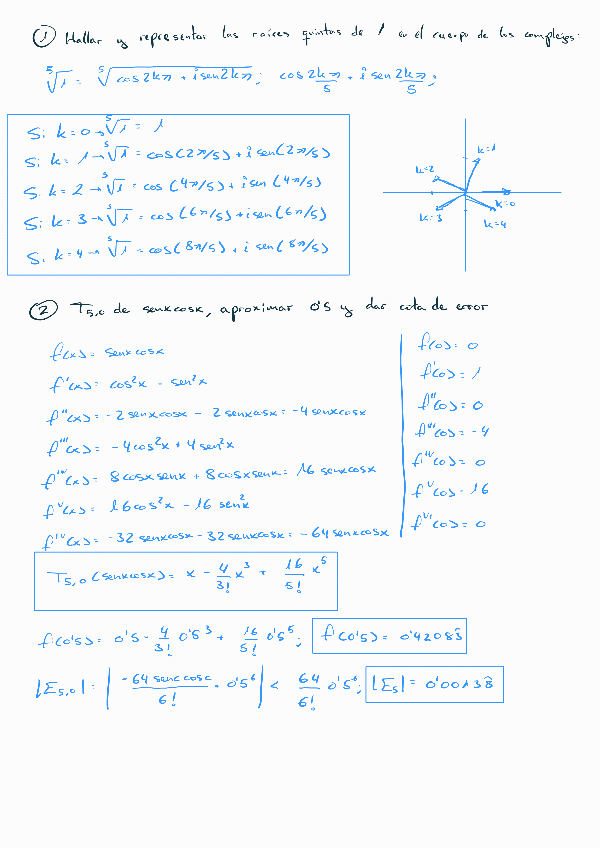 ① Hallar y representar las raíces quintas de 1 en el cuerpo de los complejos.
⁵√1 = ⁵√(cos 2kπ + i sen 2kπ) ; cos 2kπ/5 + i sen 2kπ/5 ;
Si k = 0 → ⁵√1 = 1
Si k = 1 → ⁵√1 = cos(2π/5) + i sen(2π/5)
Si k = 2 → ⁵√1 = cos(4π/5) + i sen(4π/5)
Si k = 3 → ⁵√1 = cos(6π/5) + i sen(6π/5)
Si k = 4 → ⁵√1 = cos(8π/5) + i sen(8π/5)
k=1
k=2
k=0
k=3
k=4
② T₅,₀ de senxcosx, aproximar 0'5 y dar cota de error
f(x) = senxcosx
f'(x) = cos²x - sen²x
f''(x) = -2 senxcosx - 2 senxcosx = -4senxcosx
f'''(x) = -4cos²x + 4 sen²x
f^IV(x) = 8cosxsenx + 8cosxsenx = 16 senxcosx
f^V(x) = 16cos²x - 16 sen²x
f^IV(x) = -32 senxcosx - 32 senxcosx = -64senxcosx
f(0) = 0
f'(0) = 1
f''(0) = 0
f'''(0) = -4
f^IV(0) = 0
f^V(0) = 16
f^VI(0) = 0
T₅,₀(senxcosx) = x - 4/3! x³ + 16/5! x⁵
f(0'5) = 0'5 - 4/3! 0'5³ + 16/5! 0'5⁵ ; f(0'5) = 0'42083̂
|E₅,₀| = | -64 senc cosc / 6! · 0'5⁶ | < 64/6! 0'5⁶ ; |E₅| = 0'00138̂